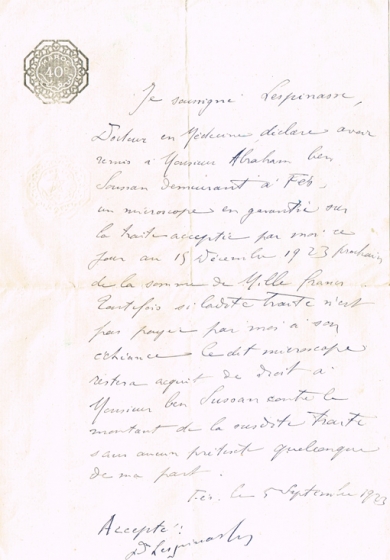 40
Je soussigné Lespinasse,
Docteur en Médecine déclare avoir
remis à Monsieur Abraham ben
Soussan demeurant à Fés
un microscope en garantie sur
la traite acceptée par moi ce
jour au 15 Décembre 1923 prochain
de la somme de Mille francs
Toutefois si ladite traite n'est
pas payée par moi à son
échéance le dit microscope
restera acquit de droit à
Monsieur ben Sussan contre le
montant de la susdite traite
sans aucun prétexte quelconque
de ma part.
Fés, le 5 Septembre 1923
Accepté :
Dr Lespinasse